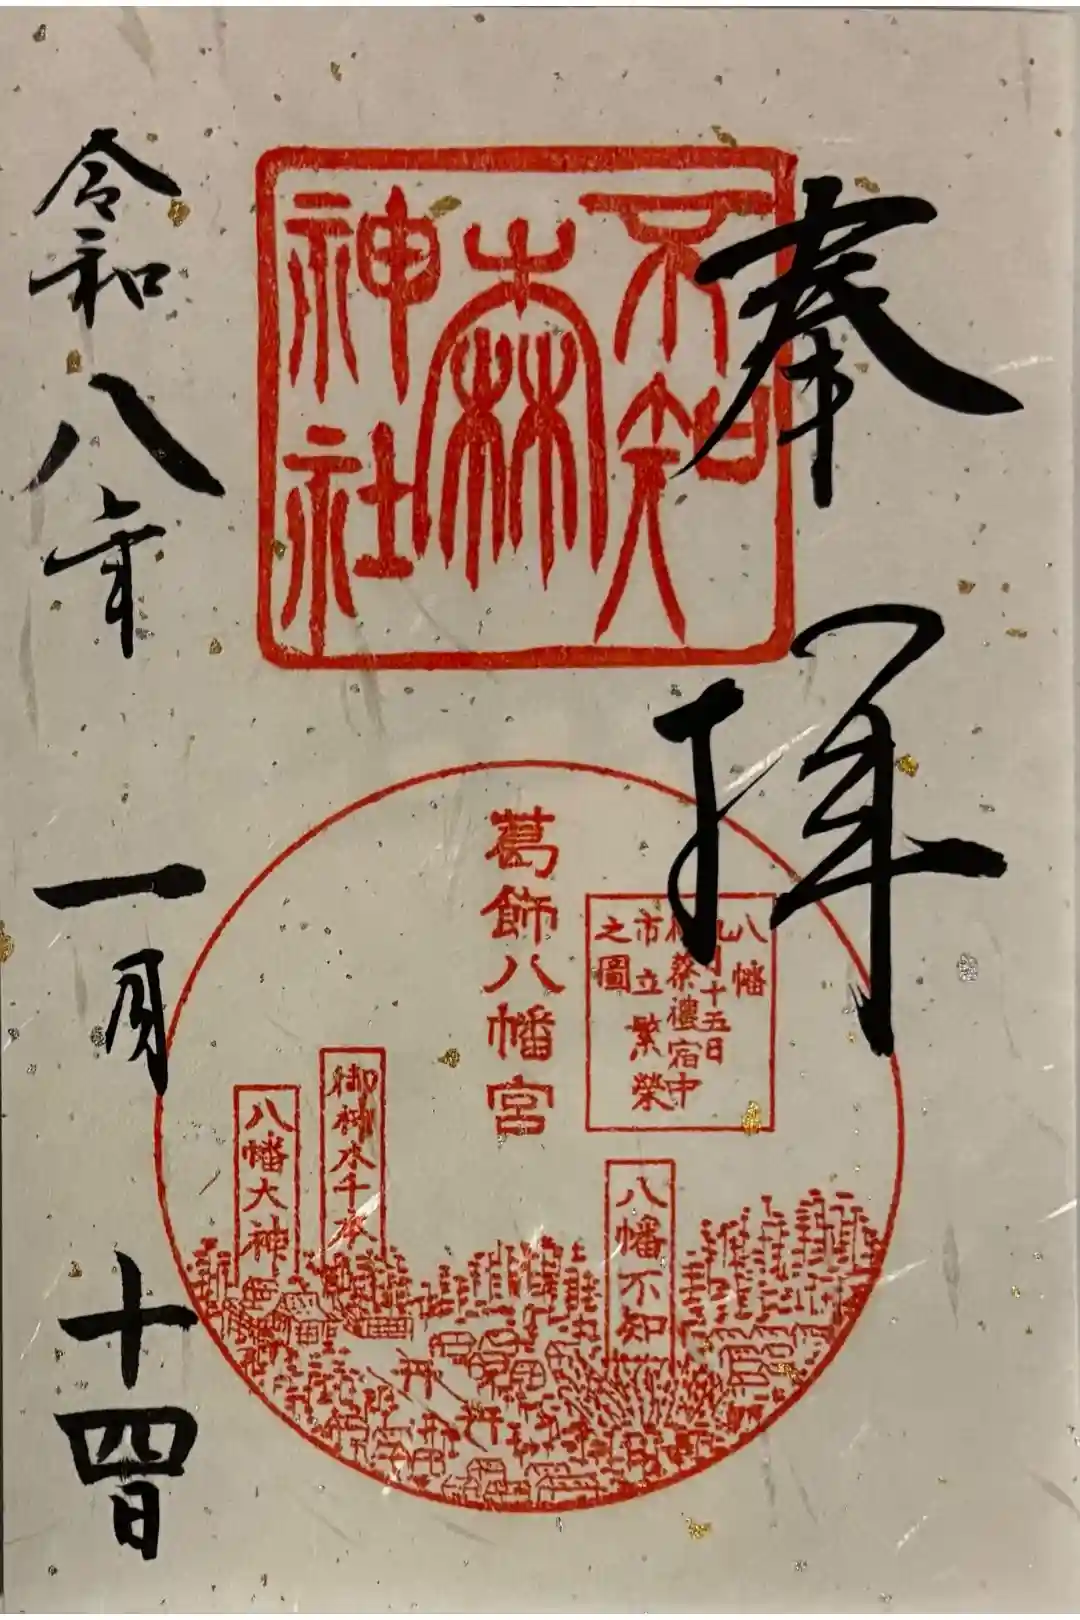 奉拝
不知
森
神社
八幡
九月十五日
祭禮宿中
市立繁榮
之圖
葛飾八幡宮
八幡不知
御神木千本
八幡大神
令和八年一月十四日